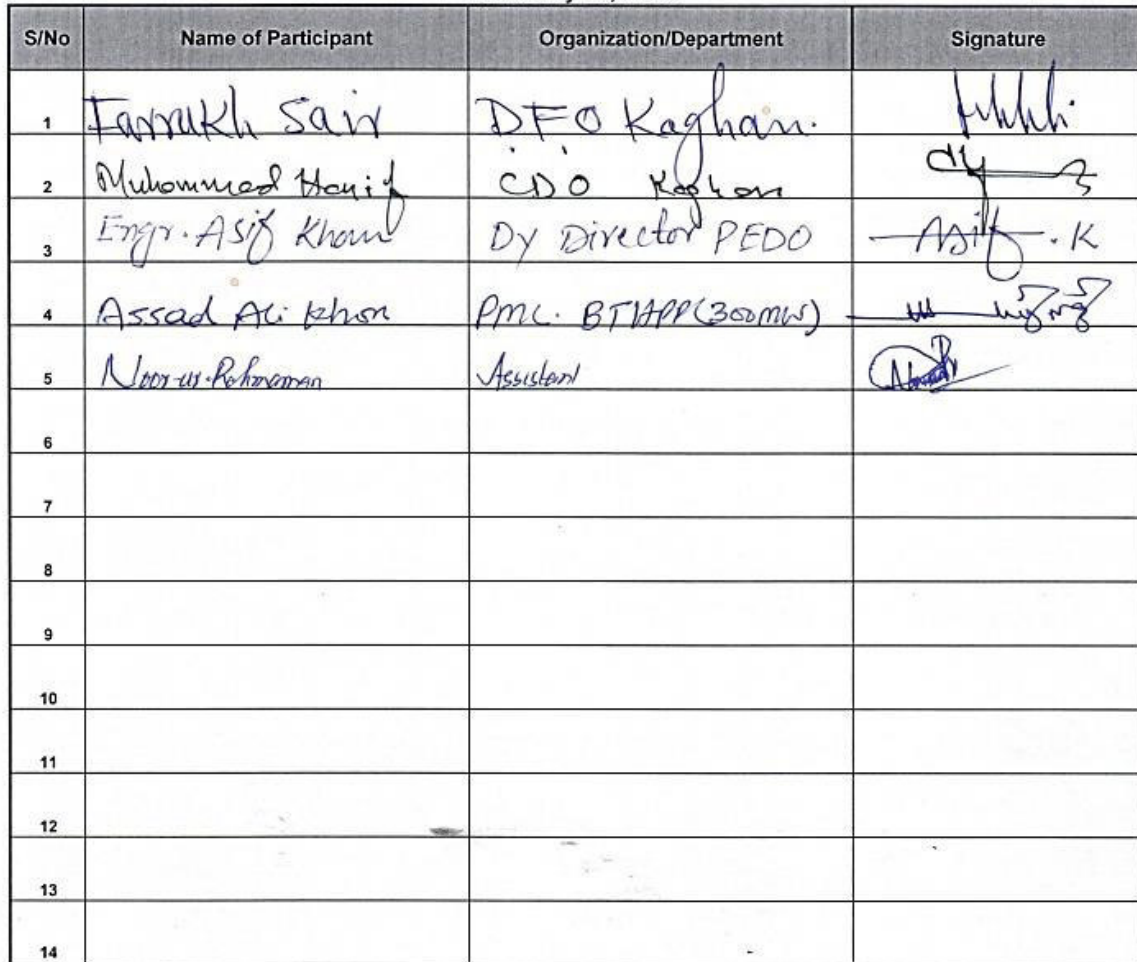 S/No Name of Participant Organization/Department Signature
1 Farrukh Sair DFO Kaghan.
2 Muhammad Hanif CDO Kaghan
3 Engr. Asif Khan Dy Director PEDO Asif . K
4 Assad Ali Khan PMC. BTHPP(300MW)
5 Noor-ur-Rehman Assistant
6
7
8
9
10
11
12
13
14